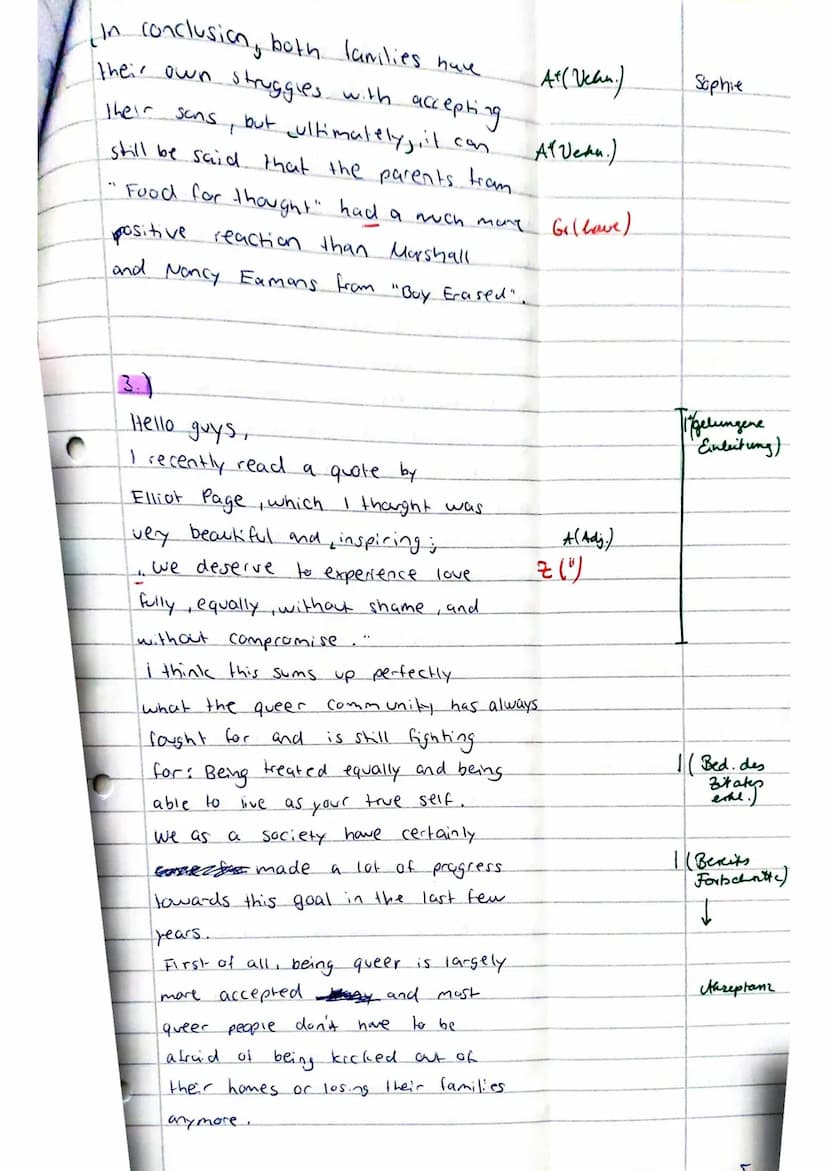 In conclusion, both families have
their own struggles with accepting
their sons, but ultimately, it can
still be said that the parents from
"Food for thought" had a much more
positive reaction than Marshall
and Nancy Eamons from "Boy Erased".
A+(Vekn.)
A+(Vekn.)
Gr(have)
Sophie
3.)
Hello guys,
I recently read a quote by
Elliot Page, which I thought was
very beautiful and inspiring;
„We deserve to experience love
fully, equally, without shame, and
without compromise."
I think this sums up perfectly
what the queer community has always
fought for and is still fighting
for: Being treated equally and being
able to live as your true self.
We as a society have certainly
made a lot of progress
towards this goal in the last few
years.
First of all, being queer is largely
more accepted and most
queer people don't have to be
afraid of being kicked out of
their homes or losing their families
anymore.
A(Adj.)
Z(")
(gelungene
Einleitung)
1 (Bed. des
Zitates
erkl.)
1 (Bereits
Fortschritte)
↓
Akzeptanz